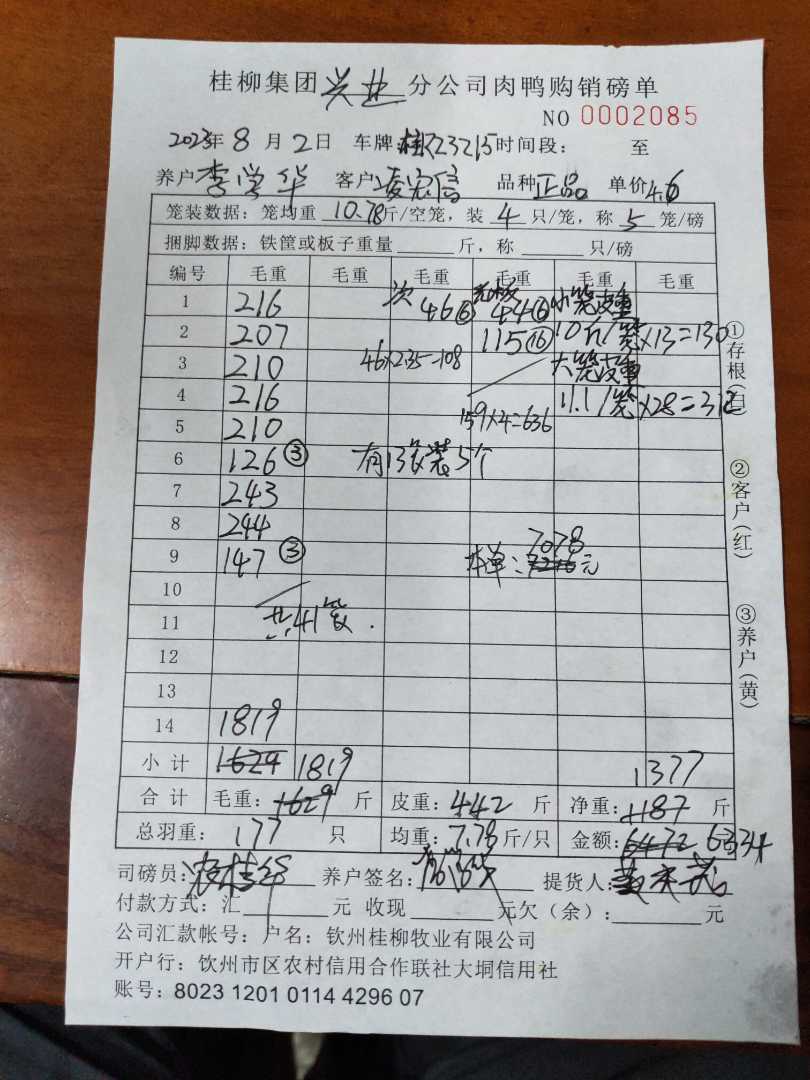 桂柳集团兴业分公司肉鸭购销磅单
NO 0002085
2023年8月2日 车牌 桂 23215 时间段: 至
养户 李学华 客户 凌宏信 品种 正品 单价 4.6
笼装数据: 笼均重 10.78 斤/空笼, 装 4 只/笼, 称 5 笼/磅
捆脚数据: 铁筐或板子重量 斤, 称 只/磅
编号 毛重 毛重 毛重 毛重 毛重 毛重
1 216 次 46⑥ 44⑥ 小笼皮重
2 207 115⑯ 10斤/笼×13=130
3 210 46×2.35=108 大笼皮重
4 216 11.1/笼×28=312
5 210 159×4=636
6 126③ 有13笼装5个
7 243
8 244 7078
9 147③ 本单: 元
10
11 共41笼.
12
13
14 1819
小计 1629 1819 1377
合计 毛重: 1629 斤 皮重: 442 斤 净重: 1187 斤
总羽重: 177 只 均重: 7.78 斤/只 金额: 6472 6334
司磅员: 养户签名: 提货人:
付款方式: 汇 元 收现 元欠(余): 元
公司汇款帐号: 户名: 钦州桂柳牧业有限公司
开户行: 钦州市区农村信用合作联社大垌信用社
账号: 8023 1201 0114 4296 07
①存根(白)
②客户(红)
③养户(黄)